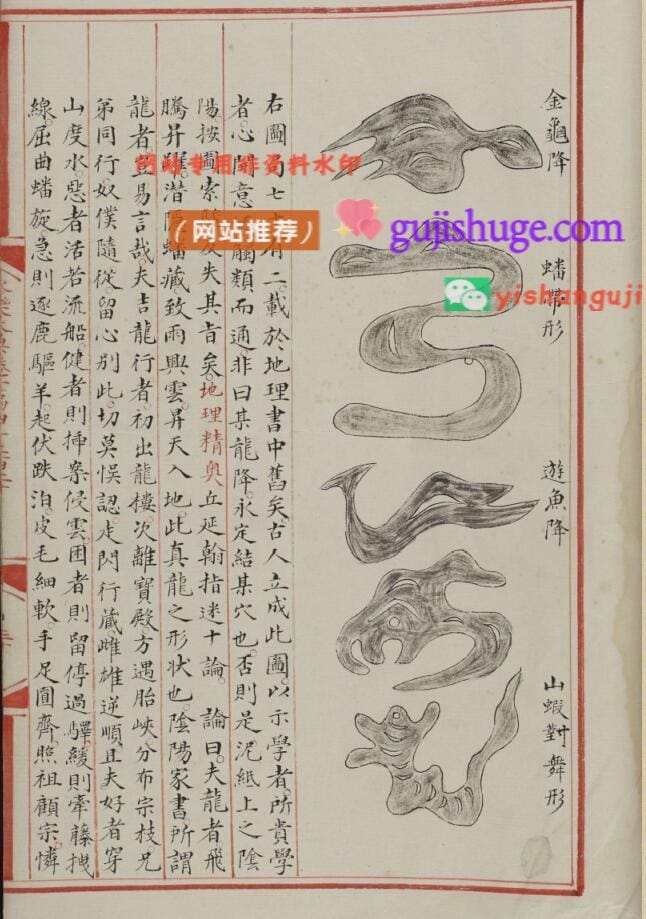 金龜降
蟠帶形
遊魚降
山蝦對舞形
右圖 七 有二載於地理書中舊矣古人立成此圖以示學者所貴學
者心 意 觸類而通非曰某龍降永定結某穴也否則是泥紙上之陰
陽按圖索 失其旨矣地理精奧丘延翰指迷十論 論曰夫龍者飛
騰昇 潛隱蟠藏致雨興雲昇天入地此真龍之形狀也陰陽家書所謂
龍者豈易言哉夫吉龍行者初出龍樓次離寶殿方遇胎峽分布宗枝兄
第同行奴僕隨從留心別此切莫悞認走閃行藏雌雄逆順且夫好者穿
山度水惡者活若流船健者則揷案侵雲困者則留停過驛緩則牽藤拽
線屈曲蟠旋急則逐鹿驅羊起伏跌泊皮毛細軟手足圓齊照祖顧宗憐
本站专用非资料水印
（网站推荐）
gujishuge.com
yishanguji